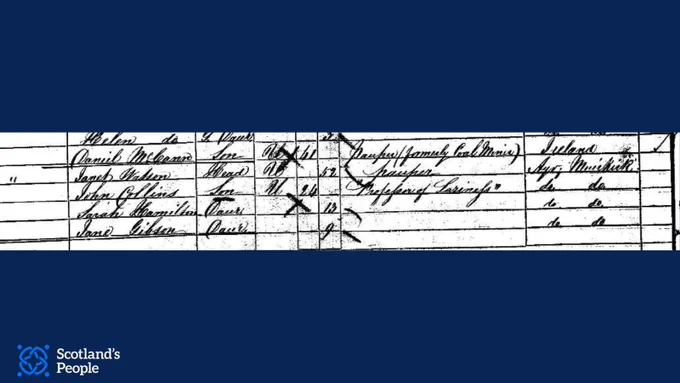 Helen do G Daur
Daniel McCann Son 41 pauper (formerly Coal Miner) Ireland
" Janet Watson Head 52 pauper Ayr, Muirkirk
John Collins Son U 24 "Professor of Laziness" do do
Sarah Hamilton Daur 13 do do
Jane Gibson Daur 9 do do
Scotland's
People